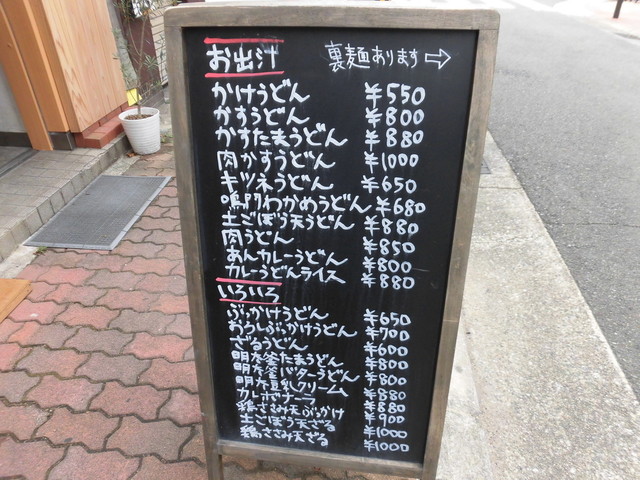 お出汁 裏麺あります⇨
かけうどん ¥550
かすうどん ¥800
かすたまうどん ¥880
肉かすうどん ¥1000
キツネうどん ¥650
鳴門わかめうどん ¥680
土ごぼう天うどん ¥880
肉うどん ¥850
あんカレーうどん ¥800
カレーうどんライス ¥880
いろいろ
ぶっかけうどん ¥650
おろしぶっかけうどん ¥700
ざるうどん ¥600
明太釜たまうどん ¥800
明太釜バターうどん ¥800
明太豆乳クリーム ¥880
カルボナーラ ¥880
鶏ささみ天ぶっかけ ¥900
土ごぼう天ざる ¥1000
鶏ささみ天ざる ¥1000